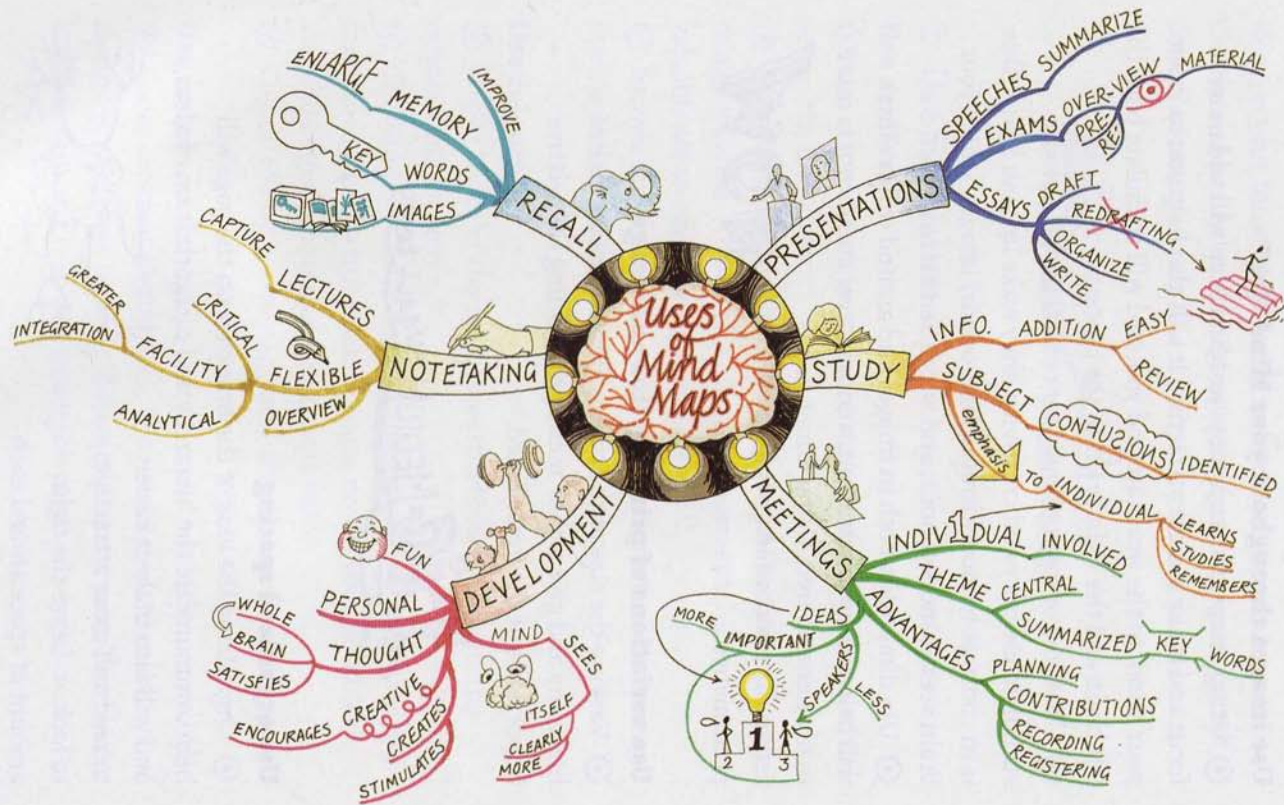 Uses
of
Mind
Maps
RECALL
ENLARGE
MEMORY
IMPROVE
KEY
WORDS
IMAGES
PRESENTATIONS
SPEECHES SUMMARIZE
EXAMS OVER-VIEW MATERIAL
PRE-
RE-
ESSAYS DRAFT
REDRAFTING
ORGANIZE
WRITE
STUDY
INFO. ADDITION EASY
REVIEW
SUBJECT CONFUSIONS IDENTIFIED
emphasis TO INDIVIDUAL LEARNS
STUDIES
REMEMBERS
MEETINGS
INDIV1DUAL INVOLVED
THEME CENTRAL
SUMMARIZED KEY WORDS
ADVANTAGES PLANNING
CONTRIBUTIONS
RECORDING
REGISTERING
IDEAS
MORE IMPORTANT
SPEAKERS
LESS
2 1 3
DEVELOPMENT
FUN
PERSONAL
THOUGHT
WHOLE
BRAIN
SATISFIES
ENCOURAGES CREATIVE
CREATES
STIMULATES
MIND SEES
ITSELF
CLEARLY
MORE
NOTETAKING
CAPTURE LECTURES
FLEXIBLE
CRITICAL
FACILITY
GREATER
INTEGRATION
ANALYTICAL
OVERVIEW